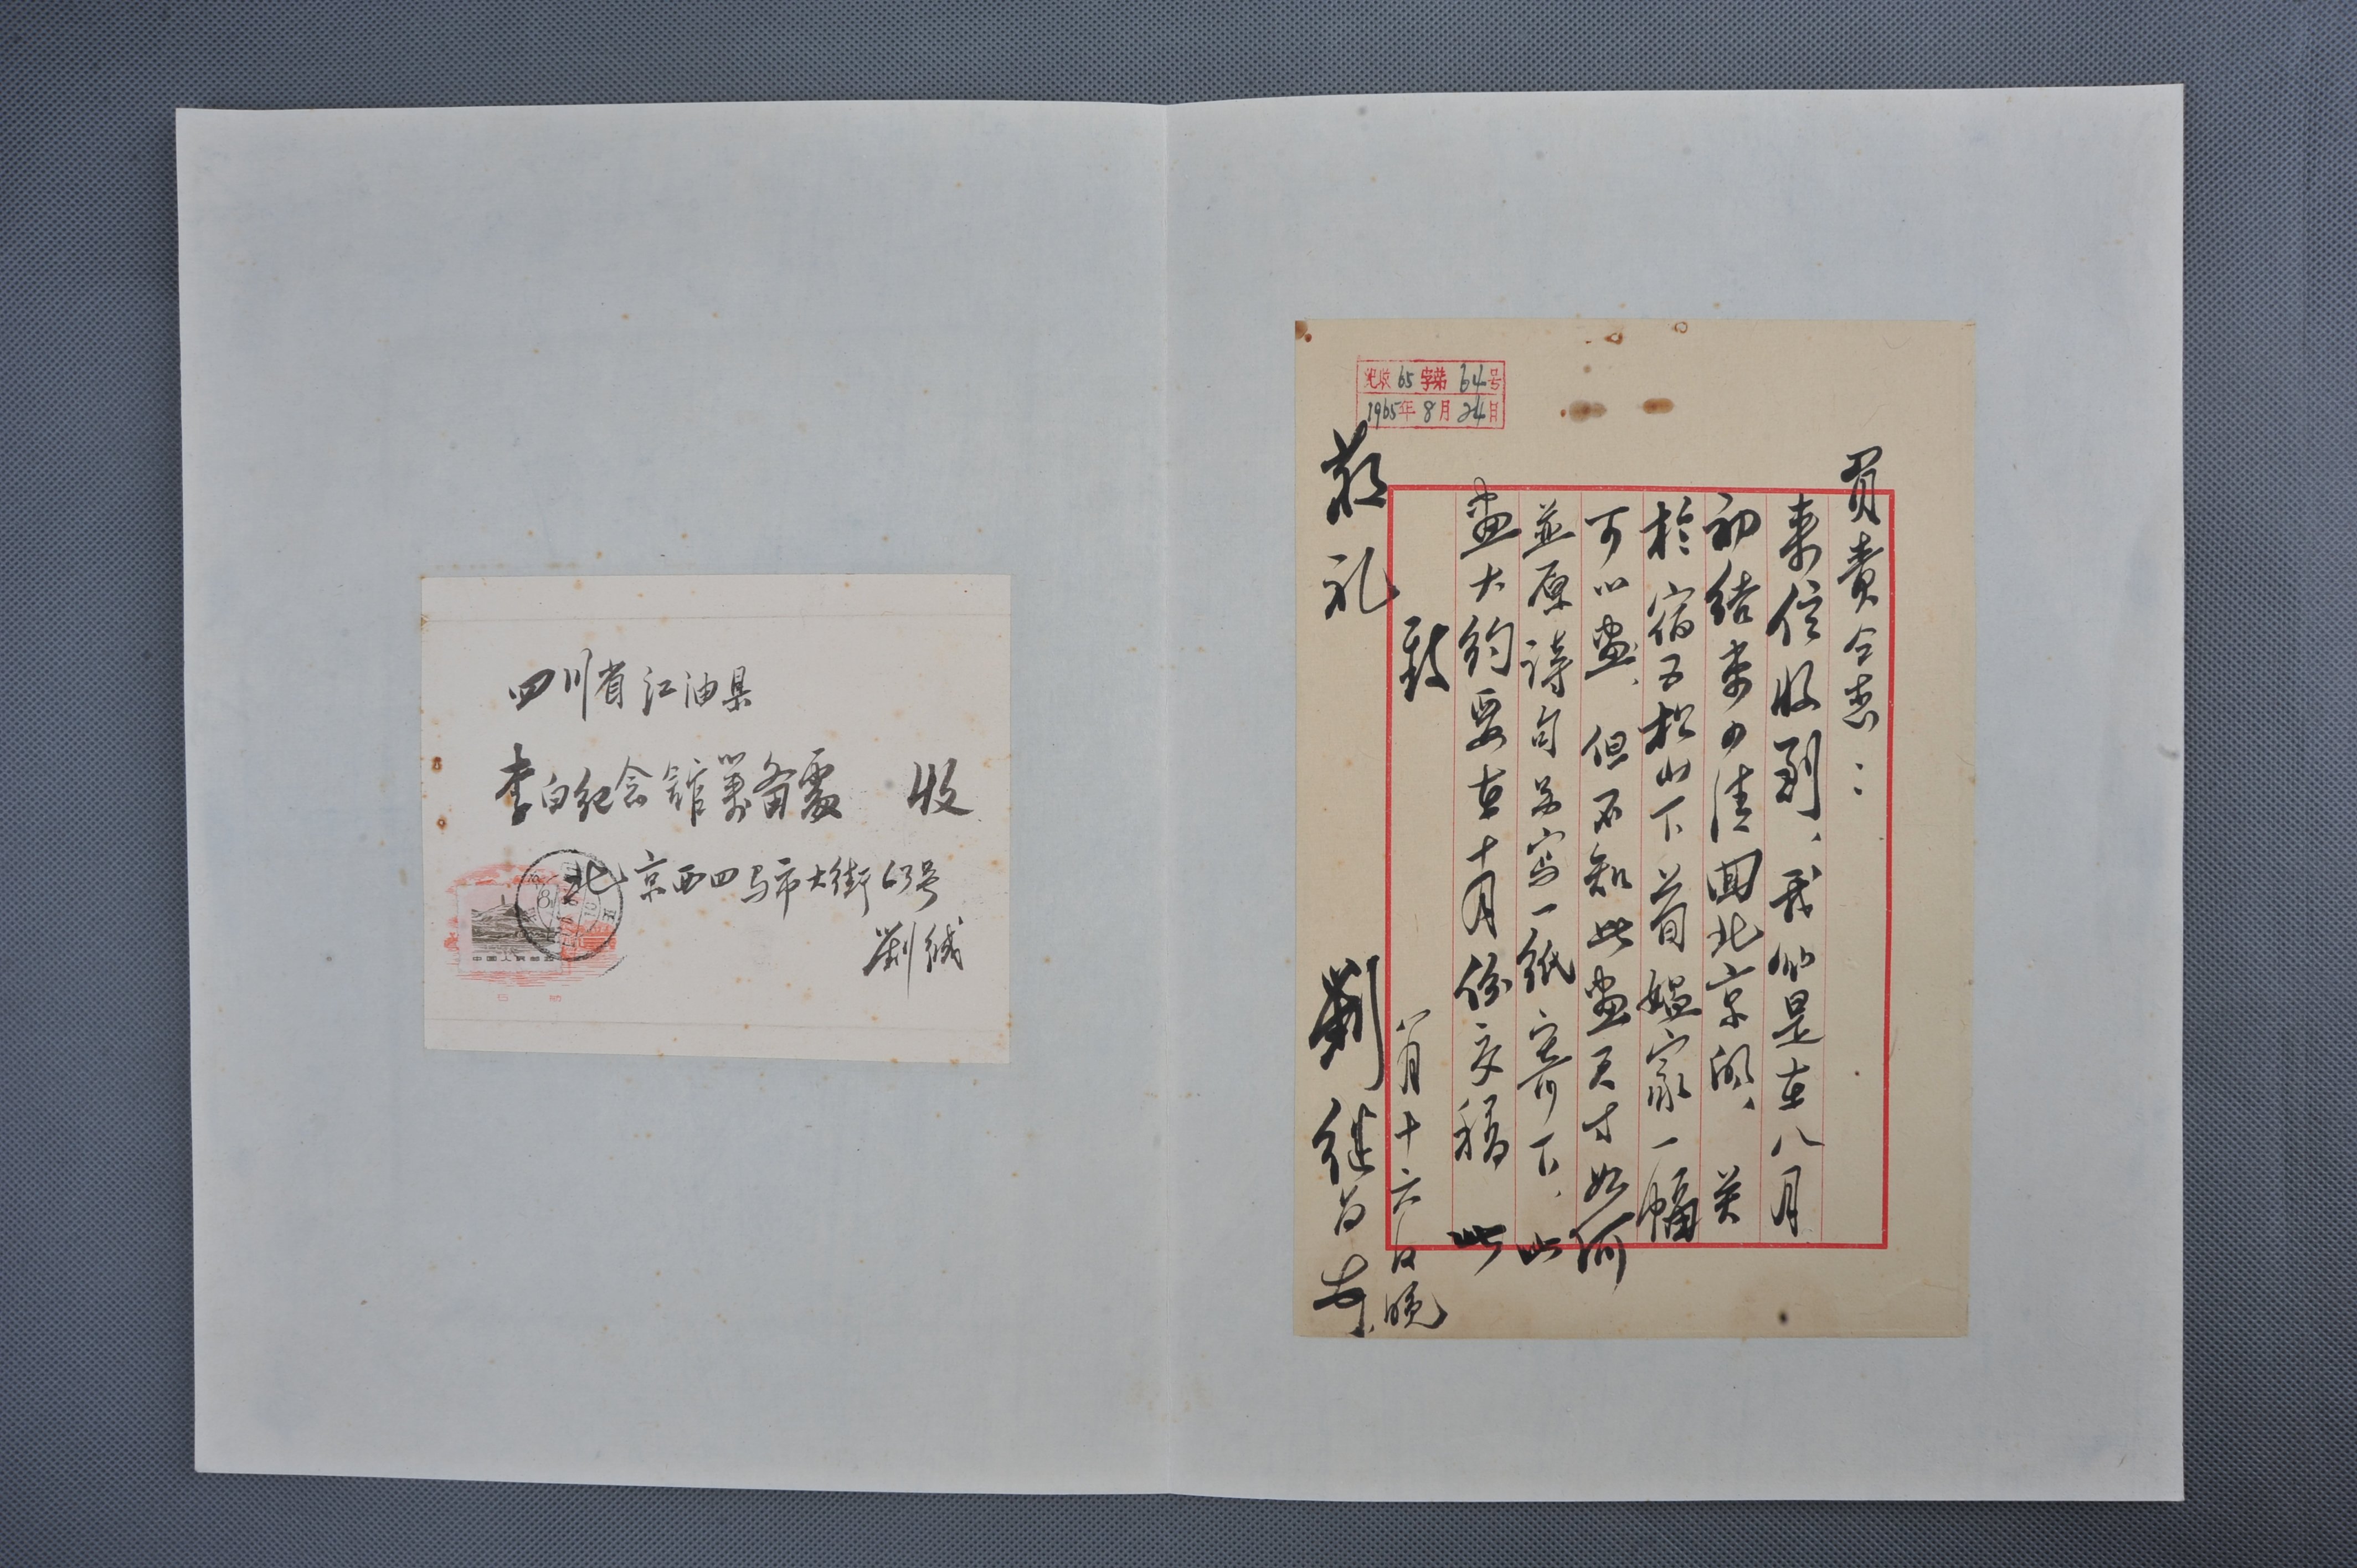 四川省江油县
李白纪念馆筹备处 收
北京西四马市大街63号
刘缄
纪收65字第64号
1965年8月24日
负责同志：
来信收到、我们是在八月
初结束四清回北京的、关
于宿五松山下荀媪家一幅
可以画、但不知此画尺寸如何
并原诗句另写一纸寄下、此
画大约要在十月份交稿 此
致
敬礼
刘继卣
八月十六日晚
中国人民邮政